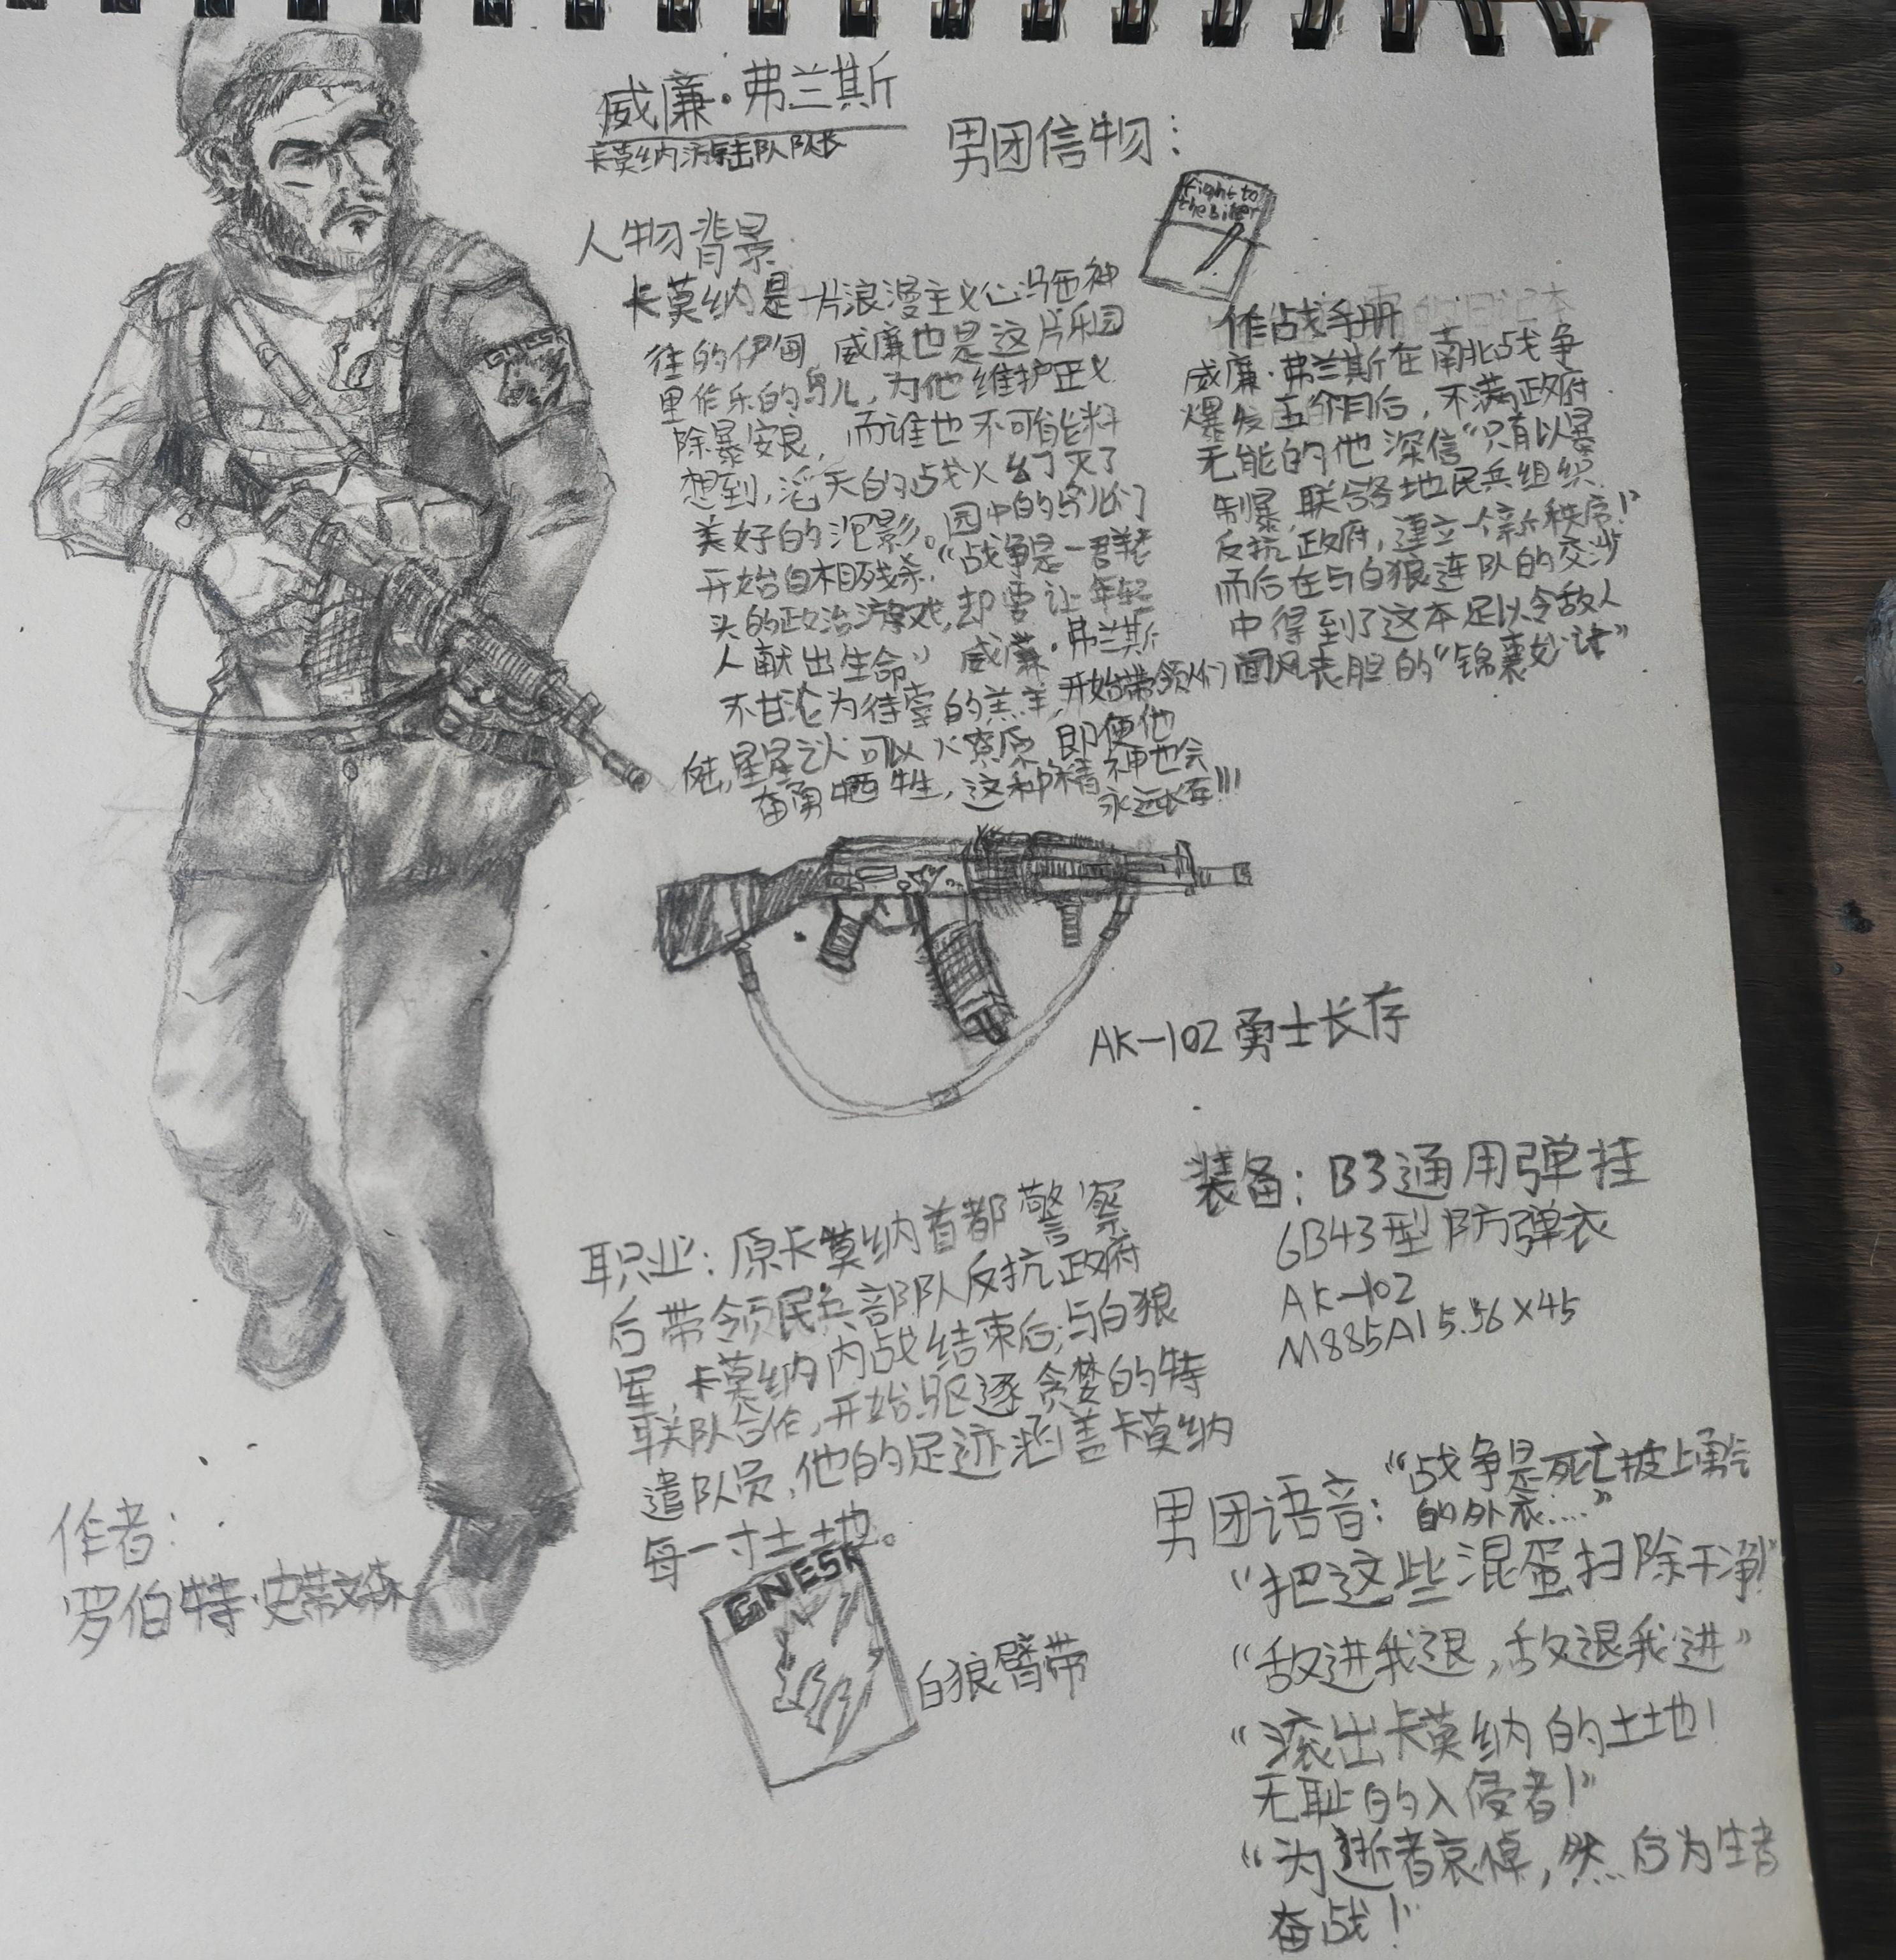 威廉·弗兰斯
卡莫纳游击队队长
男团信物：
Fight to
the
人物背景
卡莫纳是一片浪漫主义心冯西神
往的伊甸，威廉也是这片乐园
里作乐的鸟儿，为他维护正义
除暴安良，而谁也不可能料
想到，滔天的战火
美好的泡影。园中的鸟儿们
开始自相残杀，“战争是一群老
头的政治游戏，却要让年轻
人献出生命”威廉·弗兰斯
不甘沦为待宰的羔羊，开始带领人们
星星之火可以燎原，即便他
奋勇牺牲，这种精神也会
永远长存!!!
作战手册
威廉·弗兰斯在南北战争
爆发五个月后，不满政府
无能的他深信“只有以暴
制暴，联合各地民兵组织
反抗政府，建立一个新秩序！”
而后在与白狼连队的交涉
中得到了这本足以令敌人
闻风丧胆的“锦囊妙语”
AK-102 勇士长存
装备：B3通用弹挂
6B43型防弹衣
AK-102
M885A1 5.56×45
职业：原卡莫纳首都警察
后带领民兵部队反抗政府
军，卡莫纳内战结束后，与白狼
联队合作，开始驱逐贪婪的特
遣队员，他的足迹涵盖卡莫纳
每一寸土地。
GNESK
白狼臂带
男团语音：“战争是死亡披上勇气
的外衣....”
“把这些混蛋扫除干净!”
“敌进我退，敌退我进”
“滚出卡莫纳的土地！
无耻的入侵者！”
“为逝者哀悼，然后为生者
奋战！”
作者：
罗伯特·史蒂文森